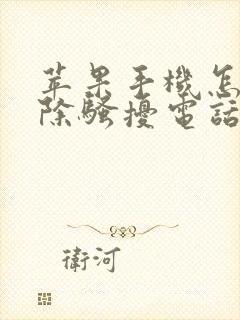 苹果手機怎
除騷擾電話
衛河